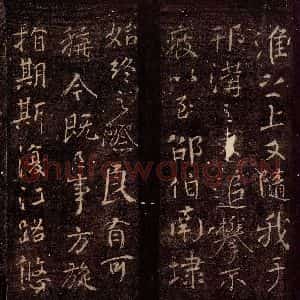 淮之上又隨我于
邗溝之上追攀不
疲以至邵伯南埭
始終之際良有可
稱今既事方旋
指期斯復江路悠
Shufawang.Cn